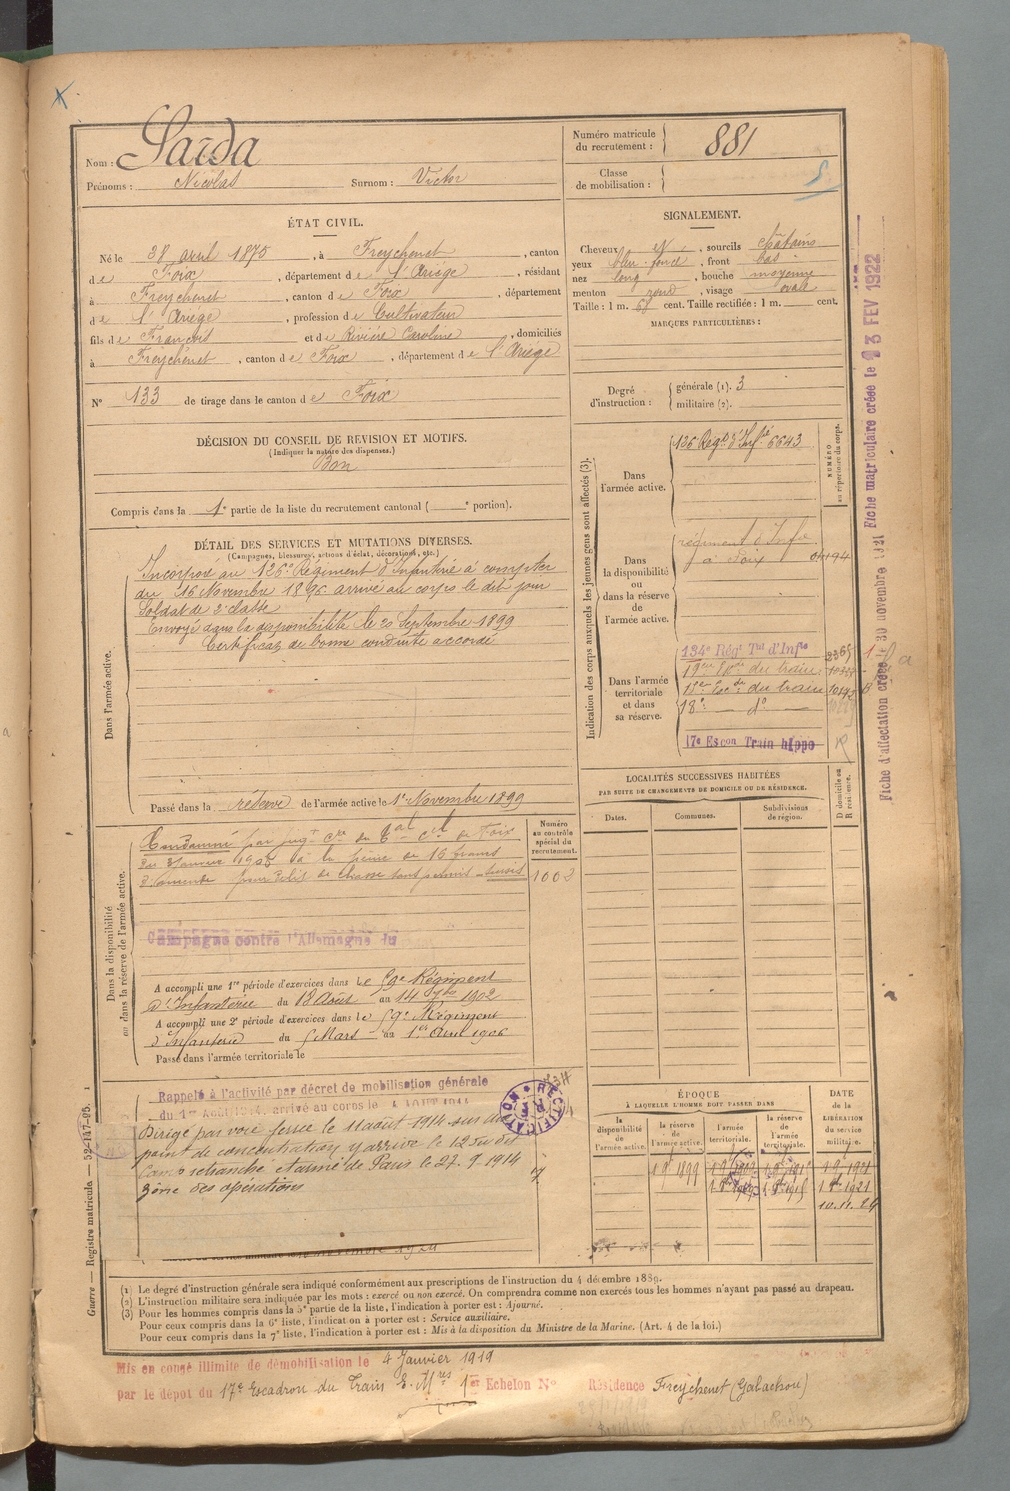 Nom : Sarda
Prénoms : Nicolas Surnom : Victor
Numéro matricule du recrutement : 881
Classe de mobilisation :
ÉTAT CIVIL.
Né le 28 avril 1875, à Freychenet, canton
de Foix, département de l'Ariège, résidant
à Freychenet, canton de Foix, département
de l'Ariège, profession de Cultivateur
fils de François et de Rivière Caroline, domiciliés
à Freychenet, canton de Foix, département de l'Ariège
N° 133 de tirage dans le canton de Foix
SIGNALEMENT.
Cheveux et, sourcils châtains
yeux bleu foncé, front bas
nez long, bouche moyenne
menton rond, visage ovale
Taille : 1 m. 68 cent. Taille rectifiée : 1 m. cent.
MARQUES PARTICULIÈRES :
Degré d'instruction : générale (1). 3
militaire (2).
DÉCISION DU CONSEIL DE REVISION ET MOTIFS.
(Indiquer la nature des dispenses.)
Bon
Compris dans la 1e partie de la liste du recrutement cantonal ( e portion).
DÉTAIL DES SERVICES ET MUTATIONS DIVERSES.
(Campagnes, blessures, actions d'éclat, décorations, etc.)
Dans l'armée active.
Incorporé au 126e Régiment d'Infanterie à compter
du 16 Novembre 1896 arrivé au corps le dit jour
Soldat de 2e classe
Envoyé dans la disponibilité le 20 Septembre 1899
Certificat de bonne conduite accordé
Passé dans la réserve de l'armée active le 1er Novembre 1899
Indication des corps auxquels les jeunes gens sont affectés (3).
NUMÉRO au répertoire du corps.
Dans l'armée active.
126 Régt d'Infie 6643
Dans la disponibilité ou dans la réserve de l'armée active.
régiment d'Infie
à Foix
Dans l'armée territoriale et dans sa réserve.
134e Régt Tal d'Infie
19eme Eon du train
18e do
17e Escon Train hippo
LOCALITÉS SUCCESSIVES HABITÉES
PAR SUITE DE CHANGEMENTS DE DOMICILE OU DE RÉSIDENCE.
Dates. Communes. Subdivisions de région. D domicile ou R résidence.
Fiche d'affectation créée le 30 novembre 1921 Fiche matriculaire créée le 13 FEV 1922
Dans la disponibilité ou dans la réserve de l'armée active.
Numéro au contrôle spécial du recrutement.
1002
Condamné par
à la peine de 16 francs
d'amende pour délit de chasse sans permis - sursis
Campagne contre l'Allemagne du
A accompli une 1re période d'exercices dans le 59e Régiment
d'Infanterie du 18 Août au 14 7bre 1902
A accompli une 2e période d'exercices dans le 59e Régiment
d'Infanterie du 5 Mars au 1er Avril 1906
Passé dans l'armée territoriale le
Rappelé à l'activité par décret de mobilisation générale
du 1er Août 1914, arrivé au corps le 4 AOUT 1914
Dirigé par voie ferrée le 11 août 1914 sur un
point de concentration y arrive le 12 du dit
Camp retranché et armée de Paris le 27. 9. 1914
Zône des opérations
RECTIFICATION
ÉPOQUE
À LAQUELLE L'HOMME DOIT PASSER DANS
la disponibilité de l'armée active.
la réserve de l'armée active.
l'armée territoriale.
la réserve de l'armée territoriale.
DATE de la LIBÉRATION du service militaire.
10.11.24
Guerre — Registre matricule — 52-147-95.
(1) Le degré d'instruction générale sera indiqué conformément aux prescriptions de l'instruction du 4 décembre 1889.
(2) L'instruction militaire sera indiquée par les mots : exercé ou non exercé. On comprendra comme non exercés tous les hommes n'ayant pas passé au drapeau.
(3) Pour les hommes compris dans la 5e partie de la liste, l'indication à porter est : Ajourné.
Pour ceux compris dans la 6e liste, l'indication à porter est : Service auxiliaire.
Pour ceux compris dans la 7e liste, l'indication à porter est : Mis à la disposition du Ministre de la Marine. (Art. 4 de la loi.)
Mis en congé illimité de démobilisation le 4 Janvier 1919
par le dépôt du 17e Escadron du Train E. Mres 1er Echelon N° Résidence Freychenet (Galachou)